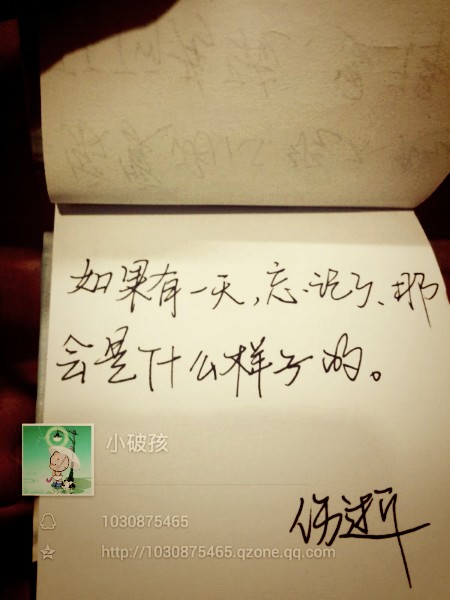 如果有一天,忘记了、那
会是什么样子的。
小破孩
伤逝
1030875465
http://1030875465.qzone.qq.com